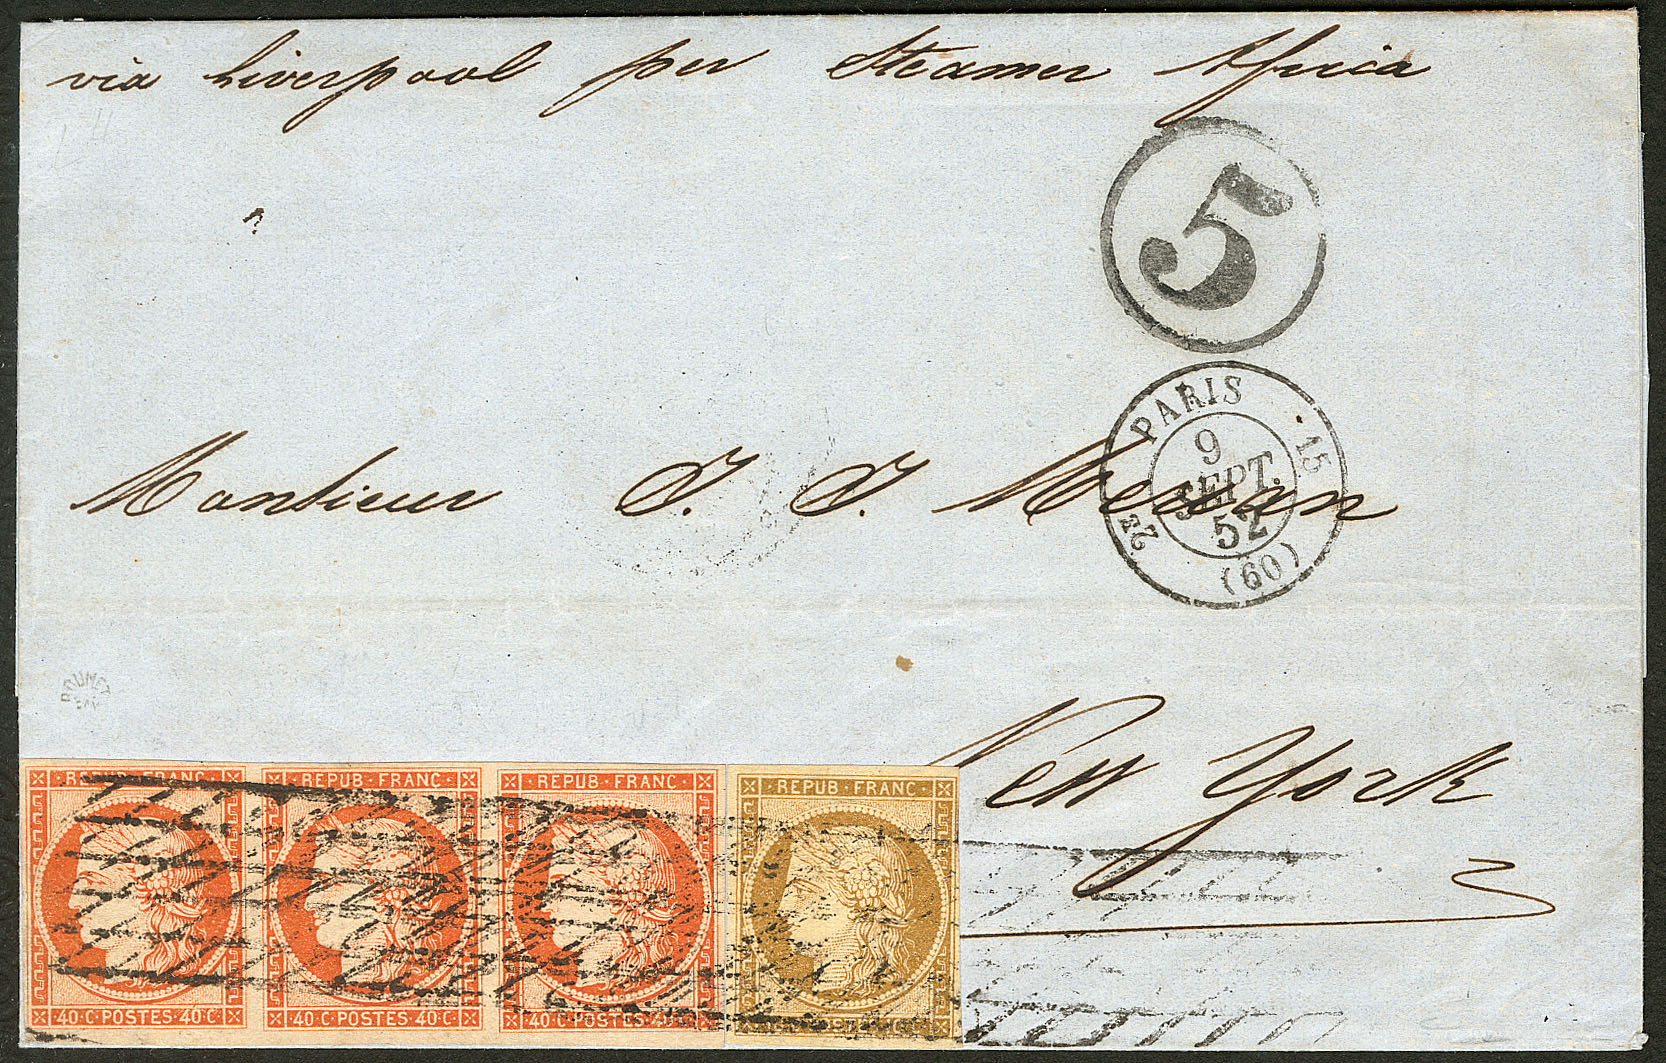 via Liverpool per Steamer Africa
5
PARIS
9
SEPT.
52
(60)
15
2E
Monsieur J. J. Merian
New York
REPUB·FRANC·
REPUB·FRANC·
REPUB·FRANC·
REPUB·FRANC·
40·C·POSTES·40·C·
40·C·POSTES·40·C·
40·C·POSTES·40·C